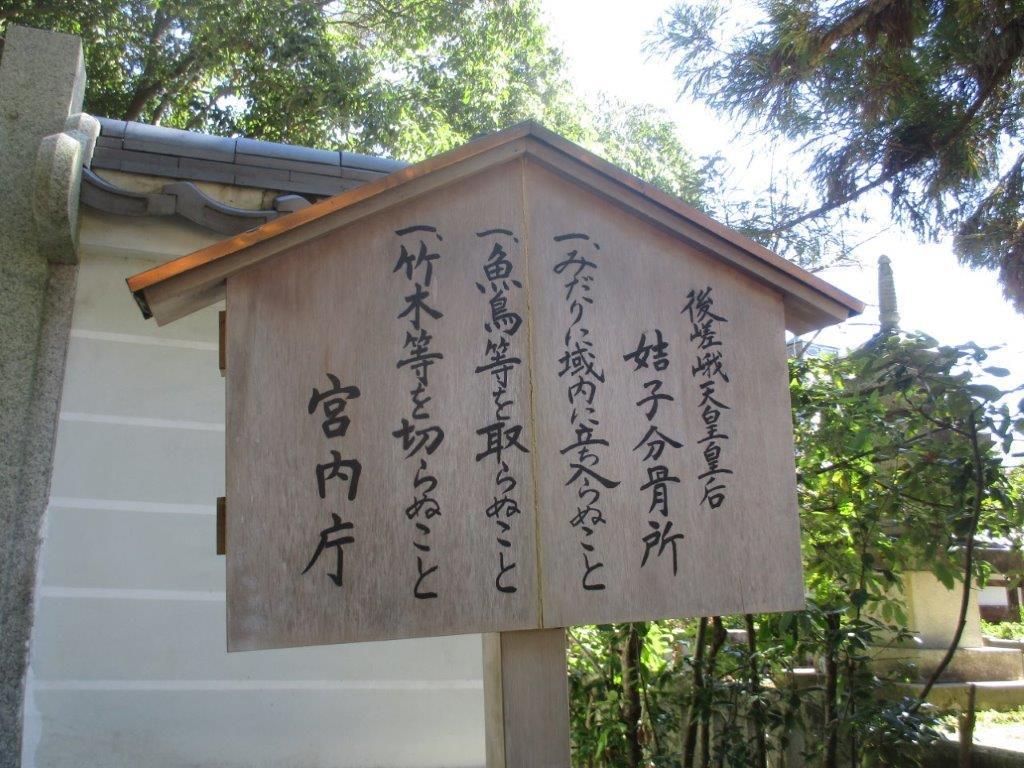 後嵯峨天皇皇后
姞子分骨所
一、みだりに域内に立ち入らぬこと
一、魚鳥等を取らぬこと
一、竹木等を切らぬこと
宮内庁